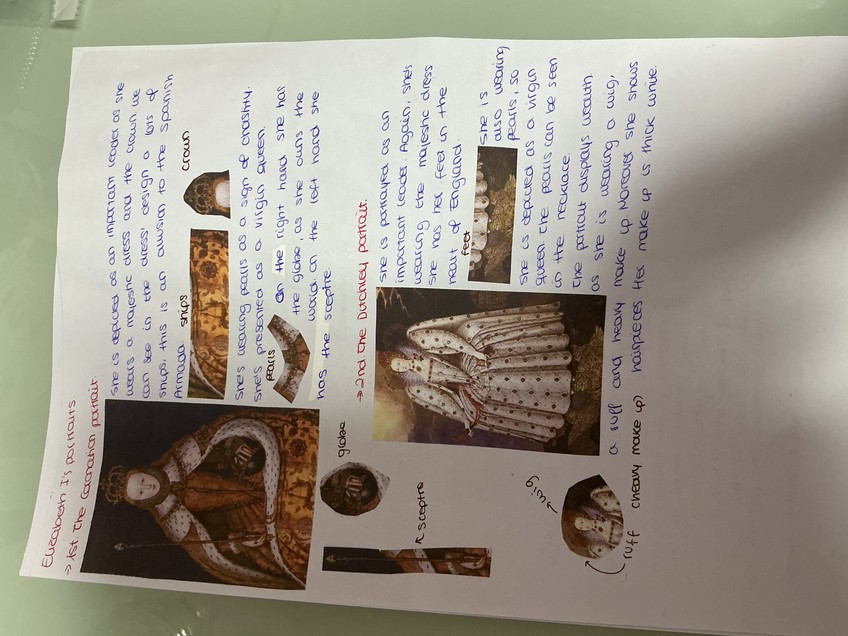 Elizabeth I's portraits
→ 1st. The Coronation portrait.
She is depicted as an important leader as she
wears a majestic dress and the crown. We
can see in the dress' design a lots of
ships, this is an allusion to the Spanish
Armada
ships
crown
She's wearing pearls as a sign of chastity.
She's presented as a virgin queen.
pearls
On the right hand she has
the globe, as she owns the
world. On the left hand she
has the sceptre.
globe
sceptre
→ 2nd The Ditchley portrait.
She is portrayed as an
important leader. Again, she's
wearing the majestic dress
she has her feet in the
heart of England.
feet
She is
also wearing
pearls, so
she is depicted as a virgin
queen. The pearls can be seen
in the necklace.
The portrait displays wealth
as she is wearing a wig,
a ruff and heavy make up. Moreover she shows
hairpieces. Her make up is thick white.
wig
ruff
(heavy make up)